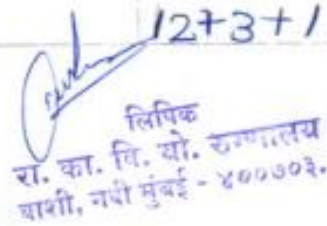 12+3+1
लिपिक
रा. का. वि. यो. रुग्णालय
वाशी, नवी मुंबई - ४००७०३.